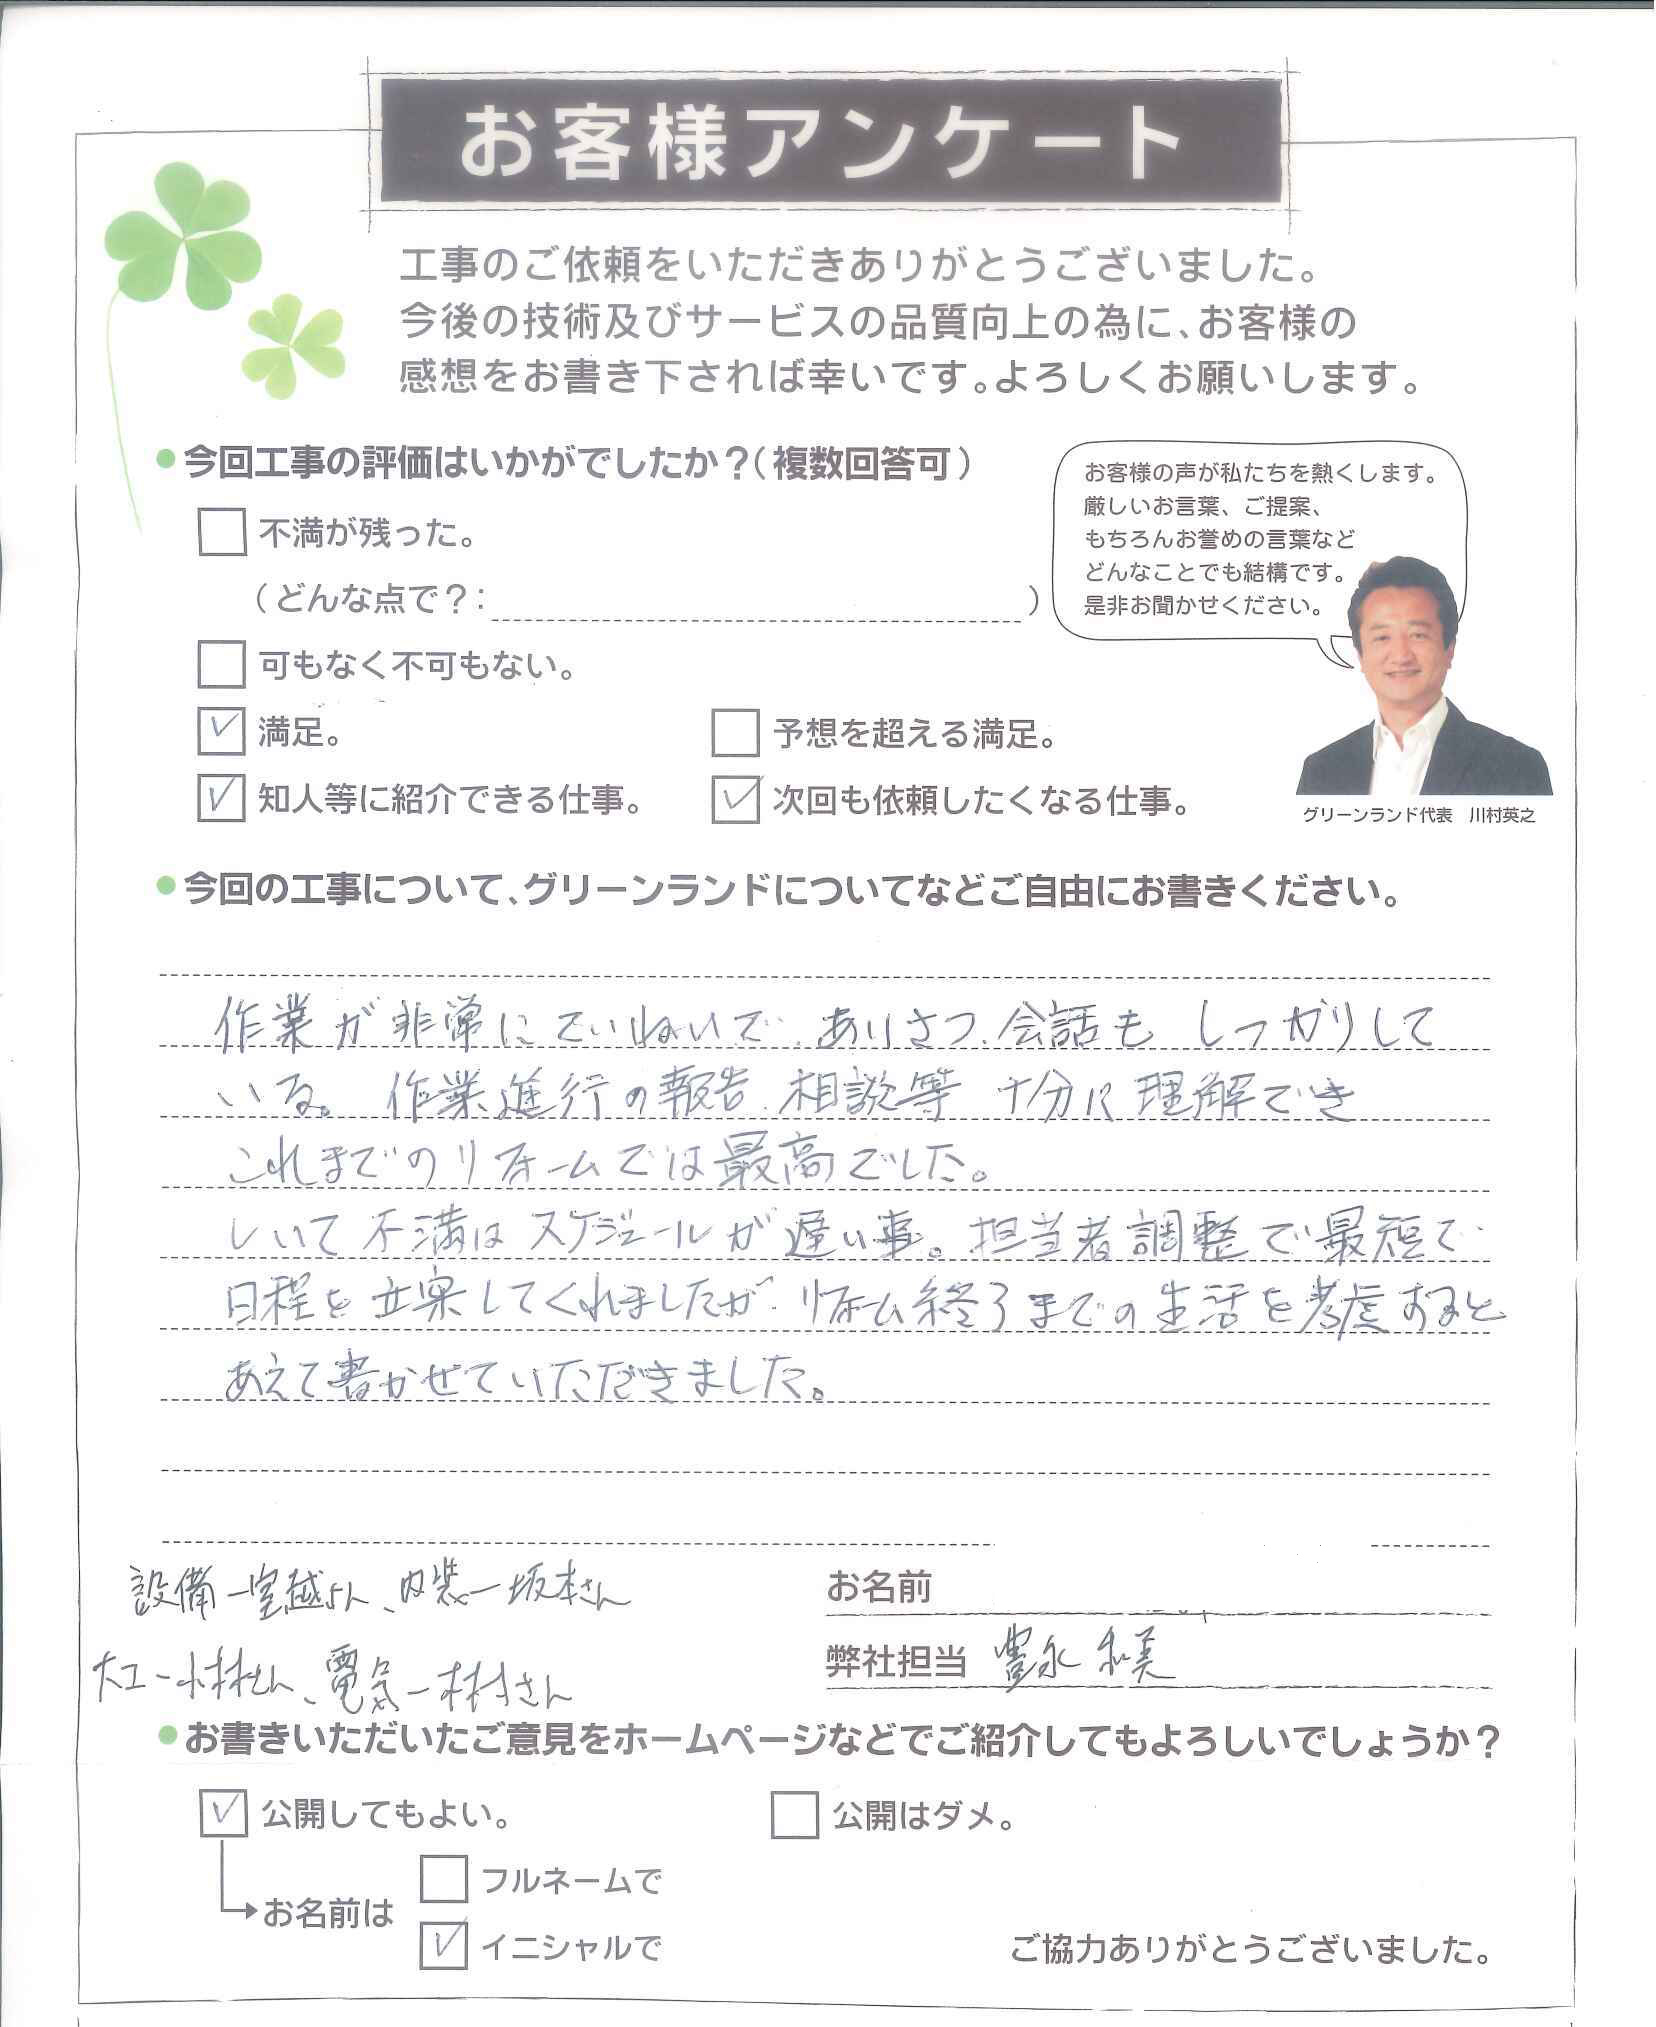 お客様アンケート
工事のご依頼をいただきありがとうございました。
今後の技術及びサービスの品質向上の為に、お客様の
感想をお書き下されば幸いです。よろしくお願いします。
●今回工事の評価はいかがでしたか？（複数回答可）
不満が残った。
（どんな点で？：　）
可もなく不可もない。
満足。
予想を超える満足。
知人等に紹介できる仕事。
次回も依頼したくなる仕事。
お客様の声が私たちを熱くします。
厳しいお言葉、ご提案、
もちろんお誉めの言葉など
どんなことでも結構です。
是非お聞かせください。
グリーンランド代表　川村英之
●今回の工事について、グリーンランドについてなどご自由にお書きください。
作業が非常にていねいで、あいさつ、会話も しっかりして
いる。 作業進行の報告、相談等 十分に理解でき
これまでのリフォームでは最高でした。
しいて不満はスケジュールが遅い事。担当者調整で最短で
日程を立案してくれましたが、リフォーム終了までの生活を考慮すると
あえて書かせていただきました。
設備ー室越さん、内装ー坂本さん
大工ー小林さん、電気ー木村さん
お名前
弊社担当 豊永 和美
●お書きいただいたご意見をホームページなどでご紹介してもよろしいでしょうか？
公開してもよい。
公開はダメ。
お名前は
フルネームで
イニシャルで
ご協力ありがとうございました。